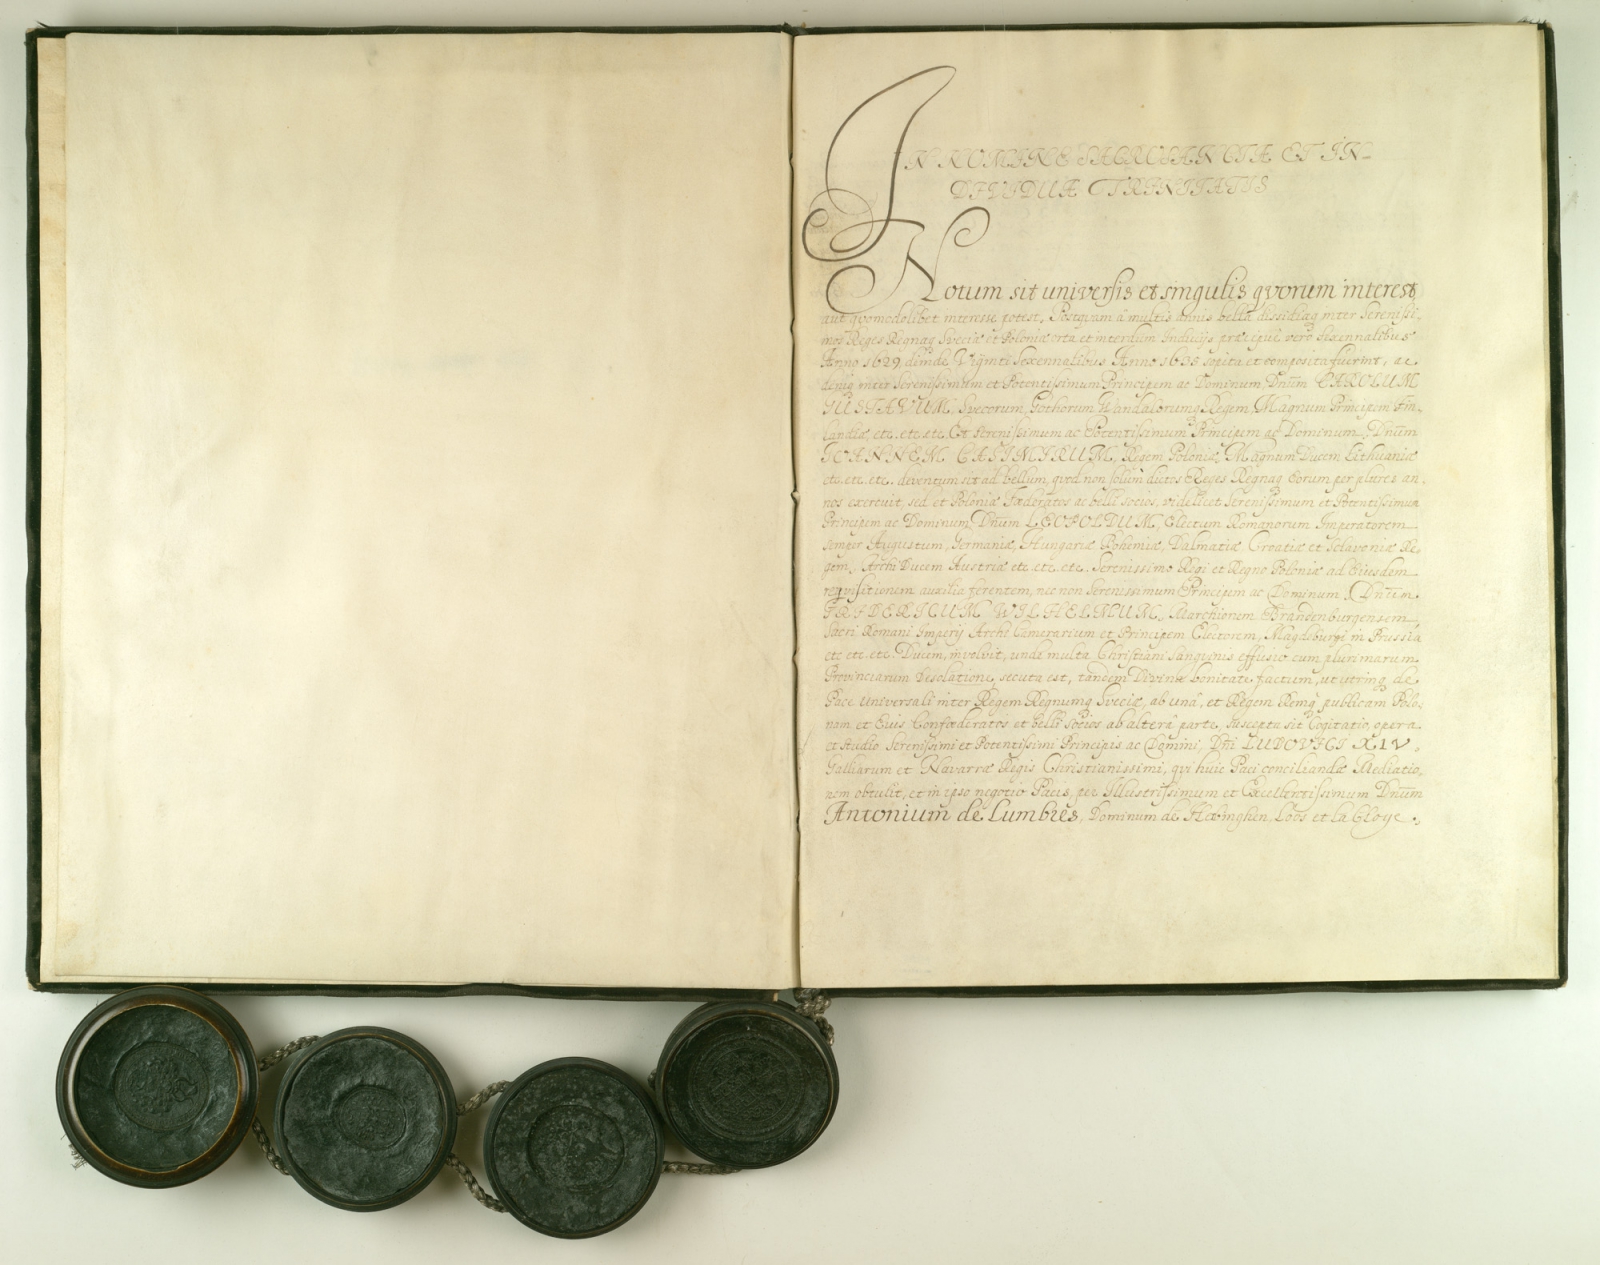 IN NOMINE SACROSANCTÆ ET IN-
DIVIDUÆ TRINITATIS
Notum sit universis et singulis qvorum interest
aut qvomodolibet interesse potest, Postqvam â multis annis bella dissidiaq inter Serenissi-
mos Reges Regnaq Sveciæ et Poloniæ orta et interdum Inducijs præcipue vero Sexennalibus
Anno 1629 deinde Viginti Sexennalibus Anno 1635 sopita et composita fuerint, ac
deniq inter Serenissimum et Potentissimum Principem ac Dominum, Dnum CAROLUM
GUSTAVUM, Svecorum, Gothorum Vandalorumq Regem, Magnum Principem Fin-
landiæ, etc. etc. etc. Et Serenissimum ac Potentissimum Principem ac Dominum, Dnum
IOANNEM CASIMIRUM, Regem Poloniæ, Magnum Ducem Lithuaniæ
etc. etc. etc. deventum sit ad bellum, qvod non solum dictos Reges Regnaq Eorum per plures an-
nos exercuit, sed et Poloniæ Fæderatos ac belli socios, videlicet Serenissimum et Potentissimum
Principem ac Dominum Dnum LEOPOLDUM, Electum Romanorum Imperatorem
semper Augustum, Germaniæ, Hungariæ Bohemiæ, Dalmatiæ Croatiæ et Sclavoniæ Re-
gem, Archi Ducem Austriæ etc. etc. etc. Serenissimo Regi et Regno Poloniæ ad Eiusdem
reqvisitionem auxilia ferentem, nec non Serenissimum Principem ac Dominum, Dnum
FRIDERICUM WILHELMUM, Marchionem Brandenburgensem
Sacri Romani Imperij Archi Camerarium et Principem Electorem, Magdeburgi in Prussia
etc etc. etc. Ducem, involvit, unde multa Christiani Sangvinis effusio cum plurimarum
Provinciarum Desolatione, secuta est, tandem Divina bonitate factum, ut utrinq de
Pace Universali inter Regem Regnumq Sveciæ, ab unâ, et Regem Remq publicam Polo-
nam et Eius Confœderatos et belli socios ab alterâ parte, suscepta sit Cogitatio, opera
et studio Serenissimi et Potentissimi Principis ac Domini, Dni LUDOVICI XIV.
Galliarum et Navarræ Regis Christianissimi, qvi huic Paci conciliandæ Mediatio-
nem obtulit, et in ipso negotio Pacis, per Illustrissimum et Excellentissimum Dnum
Antonium de Lumbres, Dominum de Herbinghen, Loos et la Cloye.